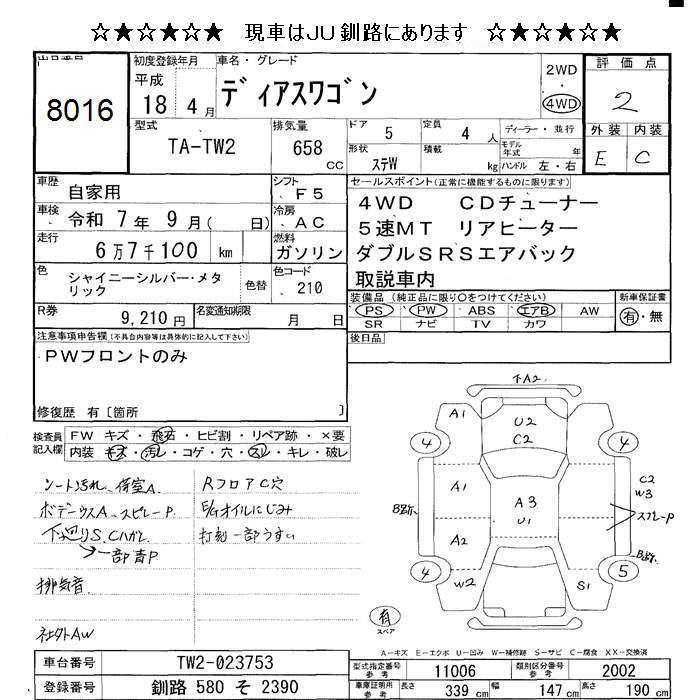 ☆★☆★☆★ 現車はJU釧路にあります ☆★☆★☆★
出品番号
8016
初度登録年月
平成
18 4 月
車名・グレード
ディアスワゴン
2WD
・
4WD
評価点
2
外装 内装
E C
型式
TA-TW2
排気量
658
CC
ドア 5
定員 4 人
形状 ステW
積載 kg
ディーラー・並行
モデル年式 年
ハンドル 左・右
車歴 自家用
シフト F5
車検 令和 7年 9月( 日)
冷房 AC
走行 6万7千100 km
燃料 ガソリン
色 シャイニーシルバー・メタリック
色替
色コード 210
R券 9,210円
名変通知期限 月 日
セールスポイント(正常に機能するものに限ります)
4WD CDチューナー
5速MT リアヒーター
ダブルSRSエアバック
取説車内
装備品(純正品に限り○をつけてください)
新車保証書
PS ・ PW ・ ABS ・ エアB ・ AW
有・無
SR ナビ TV カワ
後日品
注意事項申告欄(不具合内容等は具体的に記入して下さい)
PWフロントのみ
修復歴 有〔箇所 〕
検査員記入欄
FW キズ・飛石・ヒビ割・リペア跡・×要
内装 キズ・汚れ・コゲ・穴・スレ・キレ・破レ
シート汚れ、荷室A
RフロアC穴
ボデーウスA、スピレーP
E/Gオイルにじみ
下廻りS.Cハガレ
打刻一部うすい
一部青P
排気音
社外AW
下A2
A1
U2
C2
4
4
A1
A3
U1
C2
W3
スプレーP
A2
4
5
W2
S1
有
スペア
A-キズ E-エクボ U-凹み W-補修跡 S-サビ C-腐食 XX-交換済
車台番号 TW2-023753
登録番号 釧路 580 そ 2390
型式指定番号 11006
類別区分番号 2002
車庫証明用参考
長さ 339 cm
幅 147 cm
高さ 190 cm